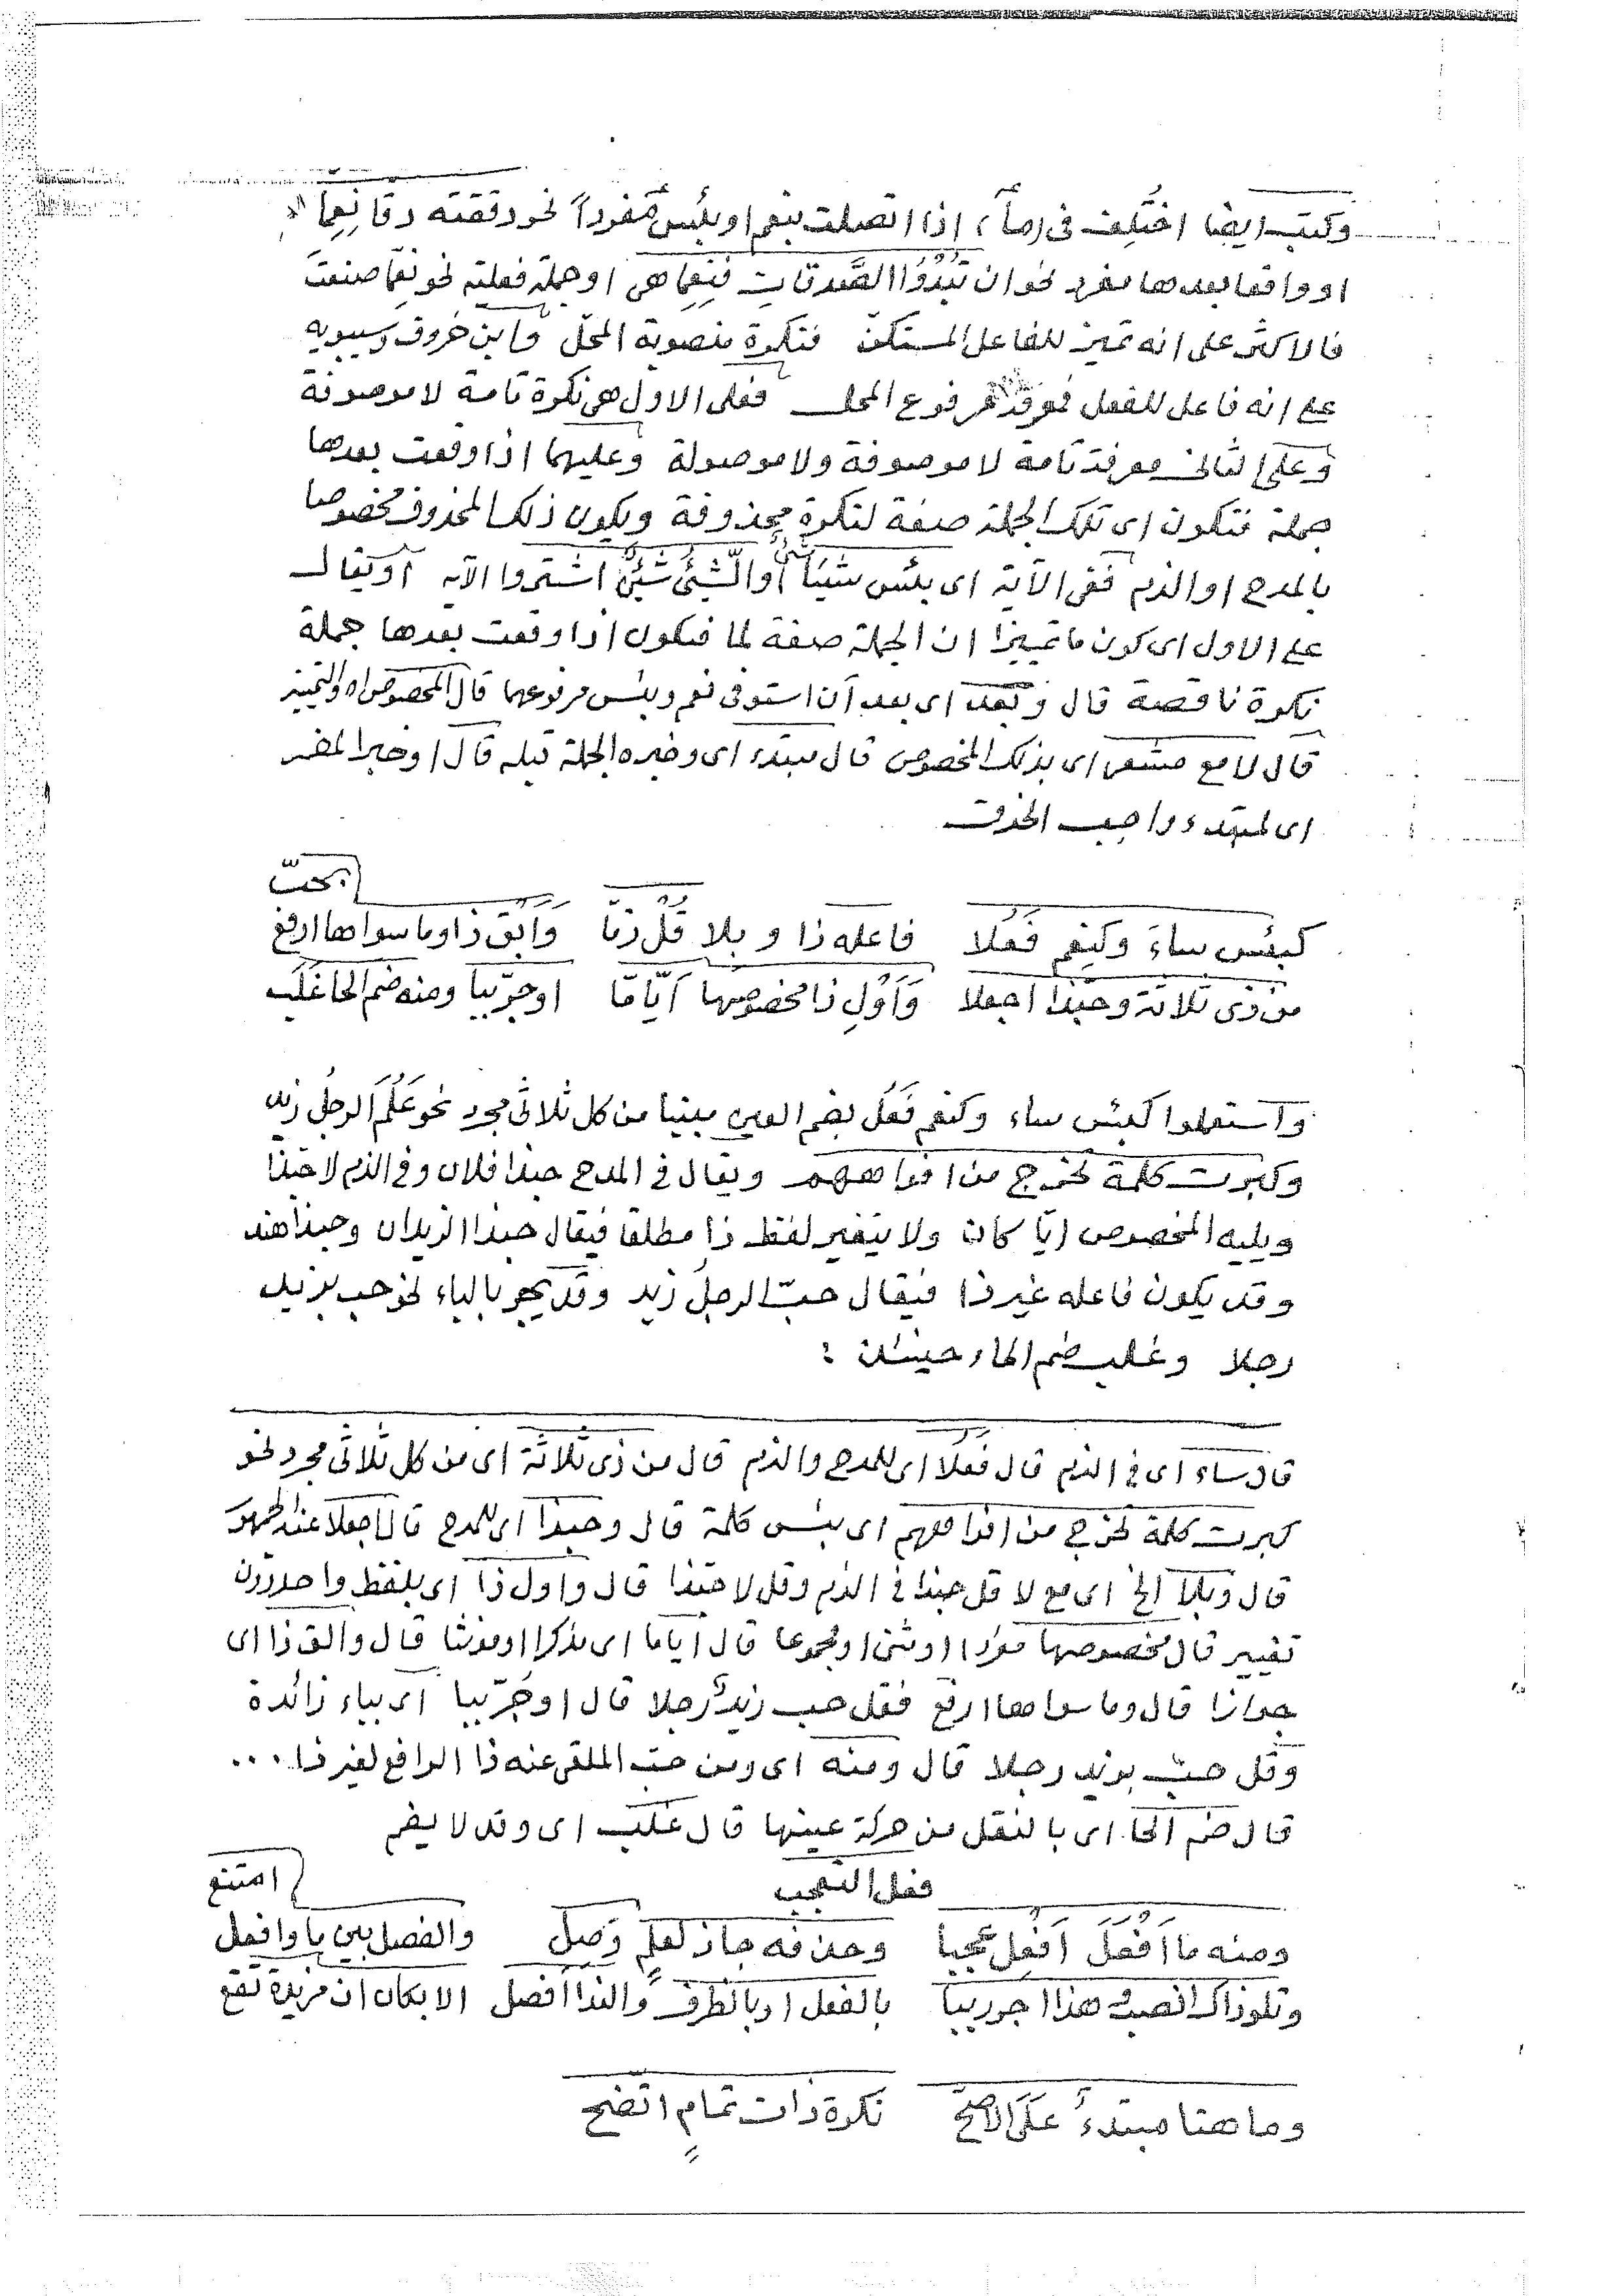 وكتب ايضا اختُلِف فى (ما) اذا اتصلت بنعم او بئس مفرداً نحو دققته دقا نِعِمّا
او واقعا بعدها مفرد نحو ان تُبْدُوا الصَّدقاتِ فنِعِمّا هى او جملة فعلية نحو نعما صنعتَ
فالاكثر على انه تميز للفاعل المستكن فنكرة منصوبة المحل وابن خروف وسيبويه
على انه فاعل للفعل فمعرفة مرفوع المحل فعلى الاول هى نكرة تامة لا موصوفة
وعلى الثانى معرفة تامة لا موصوفة ولا موصولة وعليهما اذا وقعت بعدها
جملة فتكون اى تلك الجملة صفة لنكرة محذوفة ويكون ذلك المحذوف مخصوصا
بالمدح او الذم ففى الآية اى بئس شيئا شئٌ أو الشّئُ شئٌ اشتروا الآيه أو يقال
على الاول اى كون ما تمييزا ان الجملة صفة لما فيكون اذا وقعت بعدها جملة
نكرة ناقصة قال وبعد اى بعد أن استوفى نعم وبئس مرفوعهما قال المخصوص اه والتميز
قال لا مع مشعر اى بذلك المخصوص قال مبتدء اى وخبره الجملة قبله قال او خبر المضمر
اى لمبتدء واجب الحذف
بحبّ
كبئس ساءَ وكنعم فَعُلا فاعله ذا وبلا قُل ذمّا وَابْق ذا وما سواها ارفع
من ذى ثلاثة وحبّذا اجعلا وَأوْلِ ذا مخصوصها أيّامّا او جرّ ببا ومنه ضم الحا غَلَب
واستعملوا كبئس ساء وكنعم فَعُل بضم العين مبنيا من كل ثلاثى مجرد نحو عَلُمَ الرجلُ زيد
وكبرت كلمة تخرج من افواههم ويقال فى المدح حبذا فلان وفى الذم لا حبّذا
ويليه المخصوص ايّا كان ولا يتغير لفظ ذا مطلقا فيقال حبذا الزيدان وحبذا هند
وقد يكون فاعله غير ذا فيقال حبّ الرجلُ زيد وقد يجر بالباء نحو حب بزيد
رجلا وغلب ضم الحاء حينئذ :
قال ساء اى فى الذم قال فعلا اى للمدح والذم قال من ذى ثلاثة اى من كل ثلاثى مجرد نحو
كبرت كلمة تخرج من افواههم اى بئس كلمة قال وحبذا اى للمدح قال اجعلا عند الجمهور
قال وبلا الخ اى مع لا قل حبذا فى الذم وقل لا حبّذا قال واول ذا اى بلفظ واحد دون
تغيير قال مخصوصها مفردا او مثنى او مجموعا قال ايّاما اى مذكرا او مؤنثا قال والق ذا اى
جوازا قال وما سواها ارفع فقل حب زيدٌ رجلا قال او جُرّ ببا اى بباء زائدة
وقل حبّ بزيد رجلا قال ومنه اى ومن حبّ الملقى عنه ذا الرافع لغير ذا ...
قال ضم الحا اى بالنقل من حركة عينها قال غَلَب اى وقد لا يضم
فعل التعجب
امتنع
ومنه ما أَفْعَلَ أَفْعِل عجبا وحذفه جاز لعلمٍ وَصِل والفصل بين ما وافعل
وتلو ذاك انصب وهذا اجرر ببا بالفعل او بالظرف والندا أفصل الا بكان ان مزيدة تقع
وما هنا مبتدءٌ عَلَى الاصحّ نكرة ذات تمامٍ اتضح